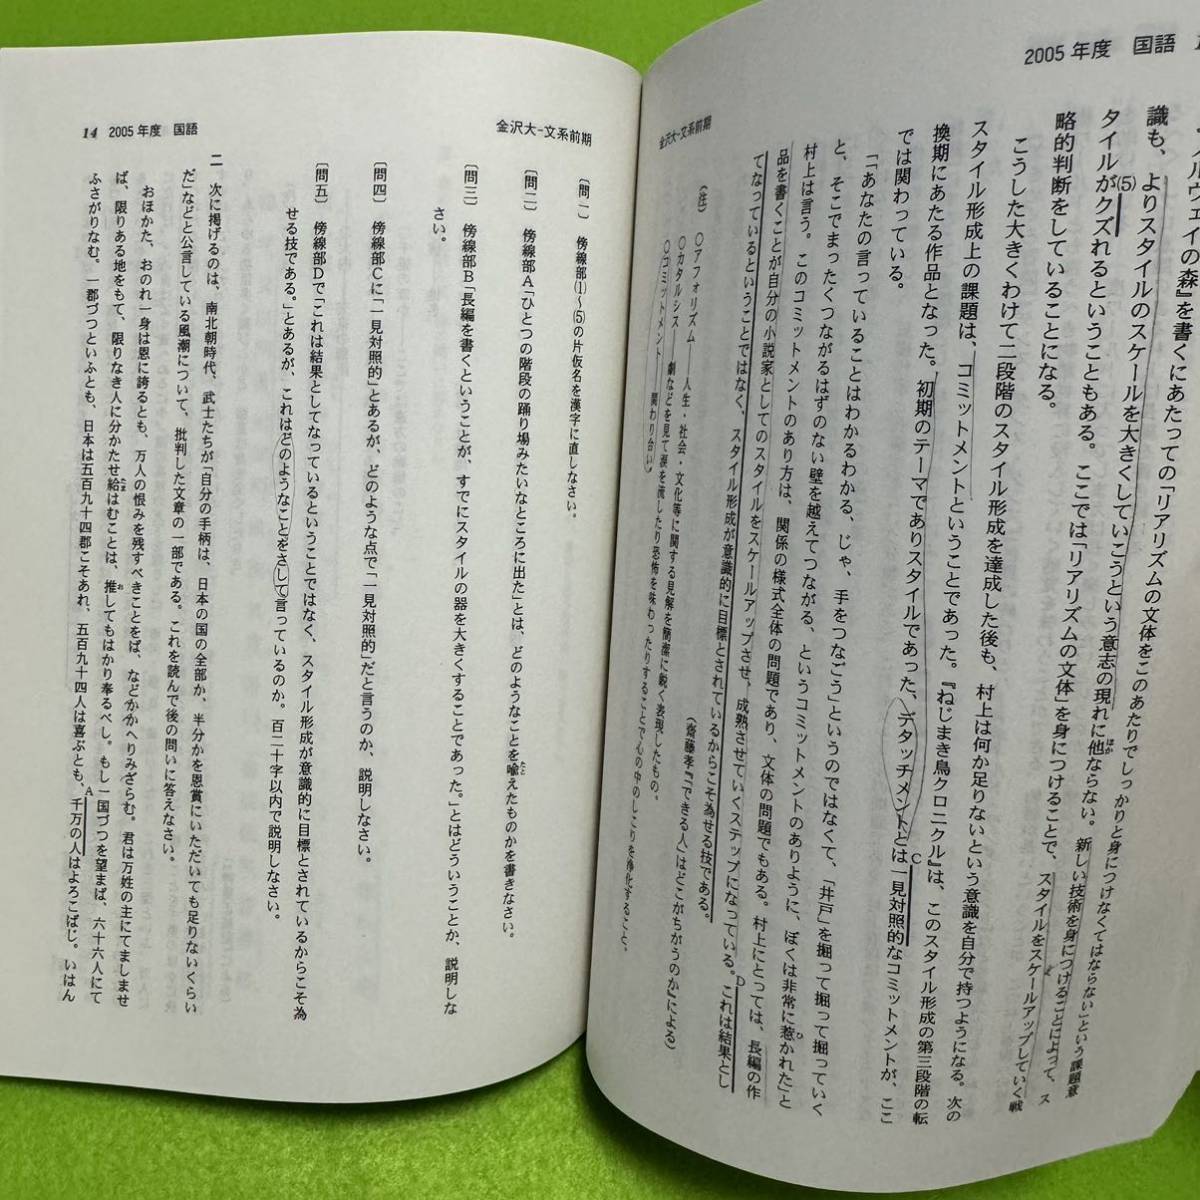 2005年度 国語
金沢大-文系前期
ノルウェイの森』を書くにあたっての「リアリズムの文体をこのあたりでしっかりと身につけなくてはならない」という課題意
識も、よりスタイルのスケールを大きくしていこうという意志の現れに他ならない。新しい技術を身につけることによって、ス
タイルが(5)クズれるということもある。ここでは「リアリズムの文体」を身につけることで、スタイルをスケールアップしていく戦
略的判断をしていることになる。
こうした大きくわけて二段階のスタイル形成を達成した後も、村上は何か足りないという意識を自分で持つようになる。次の
スタイル形成上の課題は、コミットメントということであった。『ねじまき鳥クロニクル』は、このスタイル形成の第三段階の転
換期にあたる作品となった。初期のテーマでありスタイルであった、デタッチメントとはC一見対照的なコミットメントが、ここ
では関わっている。
「「あなたの言っていることはわかるわかる、じゃ、手をつなごう」というのではなくて、「井戸」を掘って掘って掘っていく
と、そこでまったくつながるはずのない壁を越えてつながる、というコミットメントのありように、ぼくは非常に惹かれた」と
村上は言う。このコミットメントのあり方は、関係の様式全体の問題であり、文体の問題でもある。村上にとっては、長編の作
品を書くことが自分の小説家としてのスタイルをスケールアップさせ、成熟させていくステップになっている。Dこれは結果とし
てなっているということではなく、スタイル形成が意識的に目標とされているからこそ為せる技である。
(齋藤孝『「できる人」はどこがちがうのか』による)
(注) ○アフォリズム——人生・社会・文化等に関する見解を簡潔に鋭く表現したもの。
○カタルシス——劇などを見て涙を流したり恐怖を味わったりすることで心の中のしこりを浄化すること。
○コミットメント——関わり合い。
14 2005年度 国語
金沢大-文系前期
〔問一〕 傍線部(1)~(5)の片仮名を漢字に直しなさい。
〔問二〕 傍線部A「ひとつの階段の踊り場みたいなところに出た」とは、どのようなことを喩えたものかを書きなさい。
〔問三〕 傍線部B「長編を書くということが、すでにスタイルの器を大きくすることであった。」とはどういうことか、説明しな
さい。
〔問四〕 傍線部Cに「一見対照的」とあるが、どのような点で「一見対照的」だと言うのか、説明しなさい。
〔問五〕 傍線部Dで「これは結果としてなっているということではなく、スタイル形成が意識的に目標とされているからこそ為
せる技である。」とあるが、これはどのようなことをさして言っているのか。百二十字以内で説明しなさい。
二 次に掲げるのは、南北朝時代、武士たちが「自分の手柄は、日本の国の全部か、半分かを恩賞にいただいても足りないくらい
だ」などと公言している風潮について、批判した文章の一部である。これを読んで後の問いに答えなさい。
おほかた、おのれ一身は恩に誇るとも、万人の恨みを残すべきことをば、などかかへりみざらむ。君は万姓の主にてましませ
ば、限りある地をもて、限りなき人に分かたせ給はむことは、推してもはかり奉るべし。もし一国づつを望まば、六十六人にて
ふさがりなむ。一郡づつといふとも、日本は五百九十四郡こそあれ、五百九十四人は喜ぶとも、A千万の人はよろこばじ。いはん